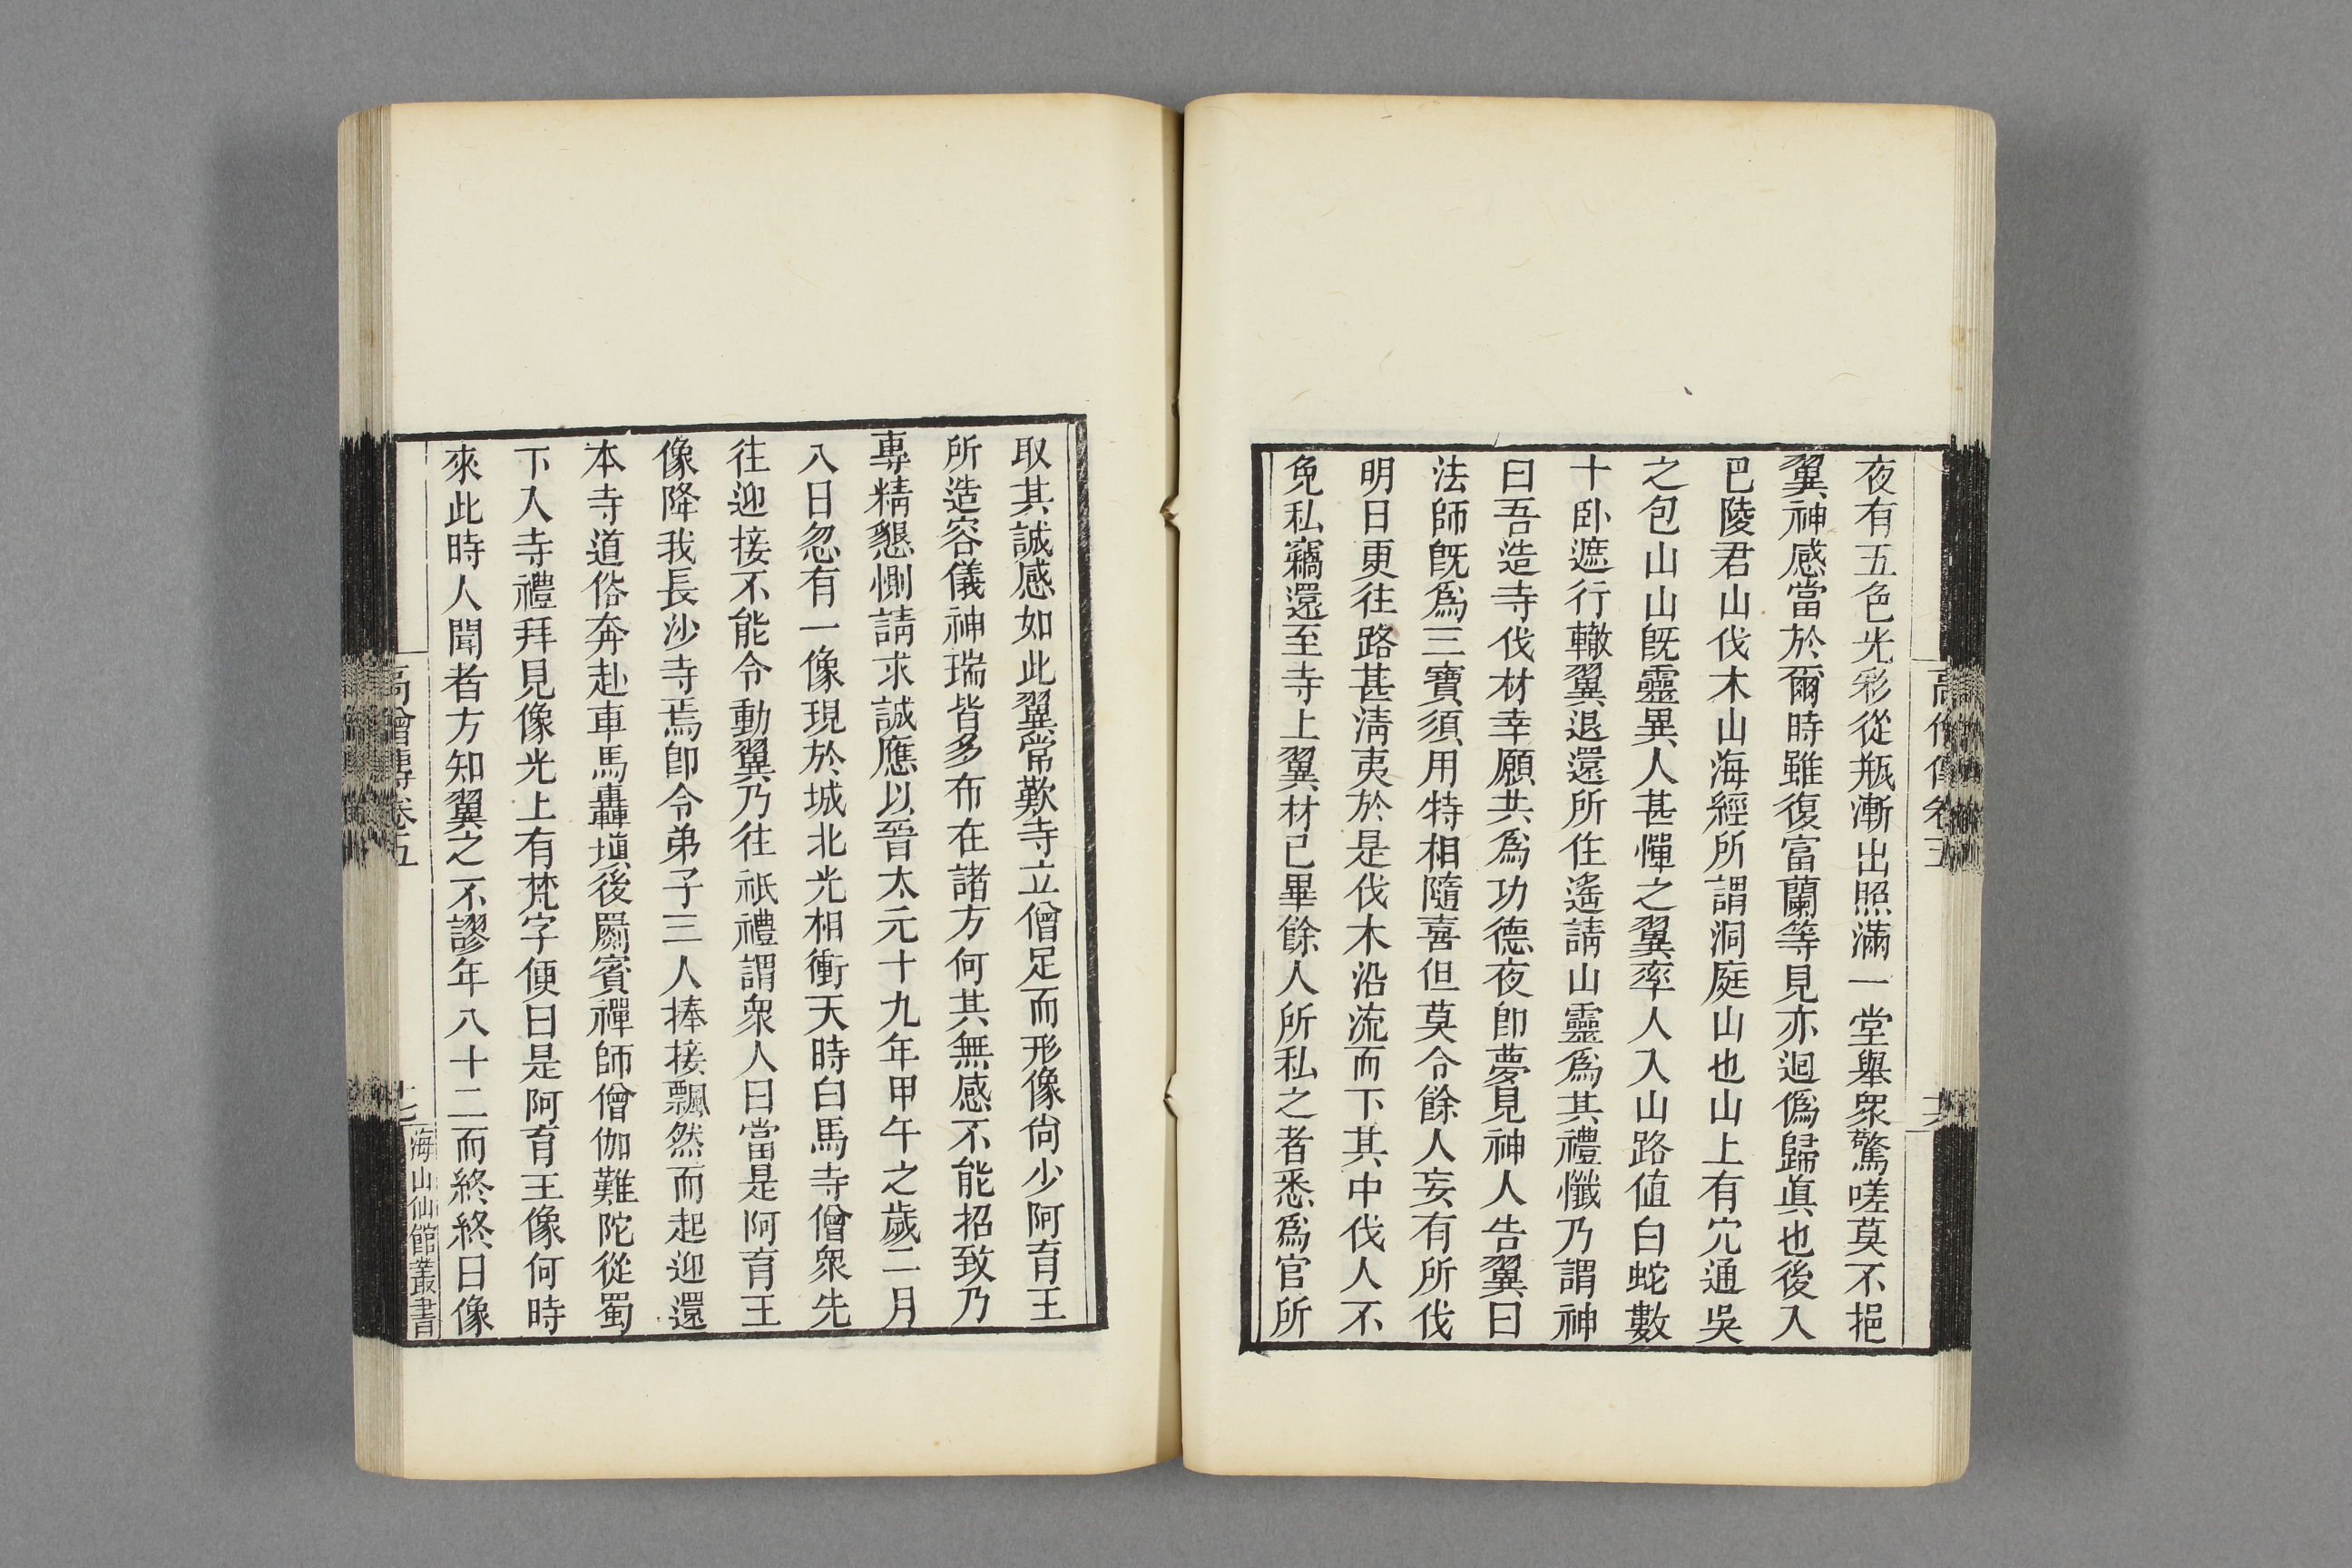 夜有五色光彩從瓶漸出照滿一堂舉衆驚嗟莫不挹
翼神感當於爾時雖復富蘭等見亦迴僞歸眞也後入
巴陵君山伐木山海經所謂洞庭山也山上有穴通吳
之包山山旣靈異人甚憚之翼率人入山路值白蛇數
十卧遮行轍翼退還所住遙請山靈爲其禮懺乃謂神
曰吾造寺伐材幸願共爲功德夜卽夢見神人告翼曰
法師旣爲三寶須用特相隨喜但莫令餘人妄有所伐
明日更往路甚淸夷於是伐木沿流而下其中伐人不
免私竊還至寺上翼材已畢餘人所私之者悉爲官所
取其誠感如此翼常歎寺立僧足而形像尙少阿育王
所造容儀神瑞皆多布在諸方何其無感不能招致乃
專精懇惻請求誠應以晉太元十九年甲午之歲二月
八日忽有一像現於城北光相衝天時白馬寺僧衆先
往迎接不能令動翼乃往祇禮謂衆人曰當是阿育王
像降我長沙寺焉卽令弟子三人捧接飄然而起迎還
本寺道俗奔赴車馬轟塡後罽賓禪師僧伽難陀從蜀
下入寺禮拜見像光上有梵字便曰是阿育王像何時
來此時人聞者方知翼之不謬年八十二而終終日像
高僧傳卷五
十七
海山仙館叢書